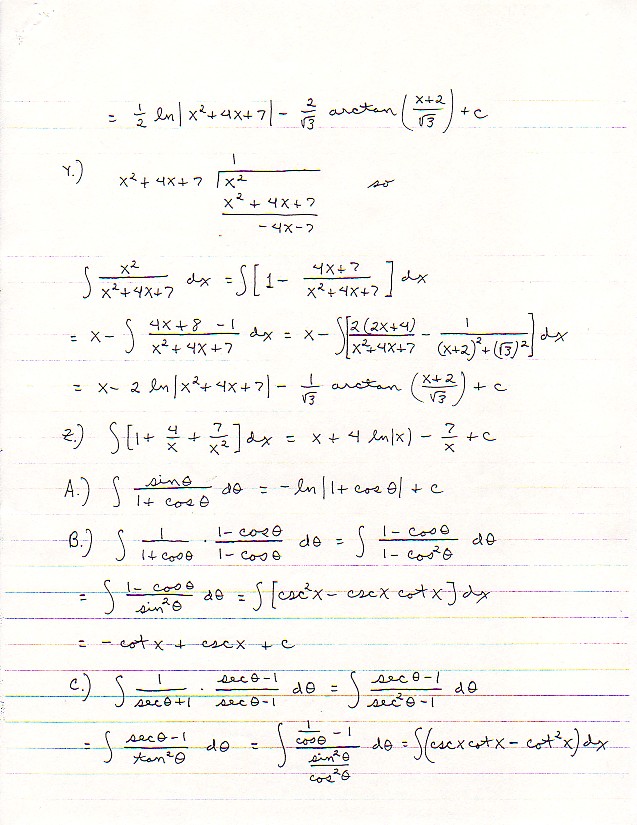 = 1/2 ln|x²+4x+7| - 2/√3 arctan((x+2)/√3) + c
1
Y.) x²+4x+7 ⟌ x² so
x²+4x+7
-4x-7
∫ x²/(x²+4x+7) dx = ∫[1 - (4x+7)/(x²+4x+7)] dx
= x - ∫ (4x+8-1)/(x²+4x+7) dx = x - ∫[2(2x+4)/(x²+4x+7) - 1/((x+2)²+(√3)²)] dx
= x - 2 ln|x²+4x+7| - 1/√3 arctan((x+2)/√3) + c
Z.) ∫[1 + 4/x + 7/x²] dx = x + 4 ln|x| - 7/x + c
A.) ∫ sinθ/(1+cosθ) dθ = -ln|1+cosθ| + c
B.) ∫ 1/(1+cosθ) · (1-cosθ)/(1-cosθ) dθ = ∫ (1-cosθ)/(1-cos²θ) dθ
= ∫ (1-cosθ)/sin²θ dθ = ∫[csc²x - cscx cotx] dx
= -cotx + cscx + c
C.) ∫ 1/(secθ+1) · (secθ-1)/(secθ-1) dθ = ∫ (secθ-1)/(sec²θ-1) dθ
= ∫ (secθ-1)/tan²θ dθ = ∫ (1/cosθ - 1)/(sin²θ/cos²θ) dθ = ∫(cscx cotx - cot²x) dx